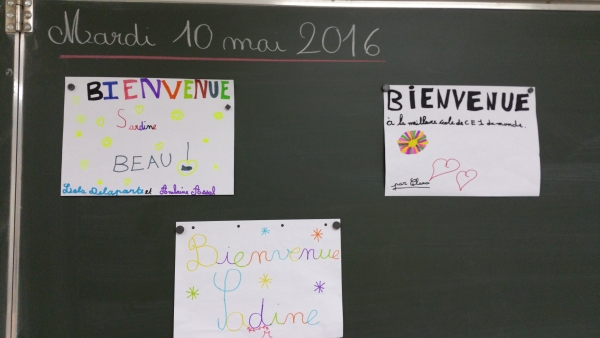 Mardi 10 mai 2016
BIENVENUE
Sardine
BEAU!
et
BIENVENUE
à la meilleure école de CE1 du monde.
par Elena
Bienvenue
Sadine